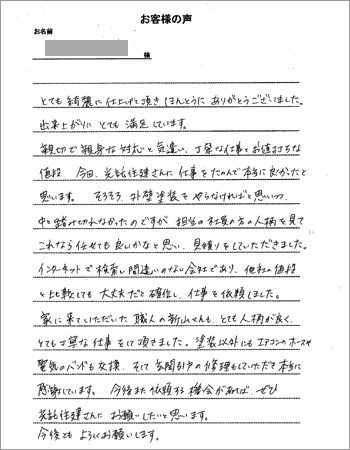 お客様の声
お名前
様
とても綺麗に仕上げて頂きほんとうにありがとうございました。
出来上がりにとても満足しています。
親切で親身な対応と気遣い、丁寧な仕事とお値打ちな
値段 今回、光託住建さんに仕事をたのんで本当に良かったと
思います。 そろそろ、外壁塗装をやらなければと思いつつ、
中々踏み切れなかったのですが、担当の社長の方の人柄を見て
これなら任せても良いかなと思い、見積りをしていただきました。
インターネットで検索し間違いのない会社であり、他社の値段
と比較しても大丈夫だと確信し、仕事を依頼しました。
家に来ていただいた職人の新山くんも、とても人柄が良く、
とても丁寧な仕事をして頂きました。塗装以外にもエアコンのホースや
電気のバンドも交換、そして玄関引戸の修理もしていただき本当に
感謝しています。 今後また依頼する機会があれば、ぜひ
光託住建さんにお願いしたいと思います。
今後ともよろしくお願いします。